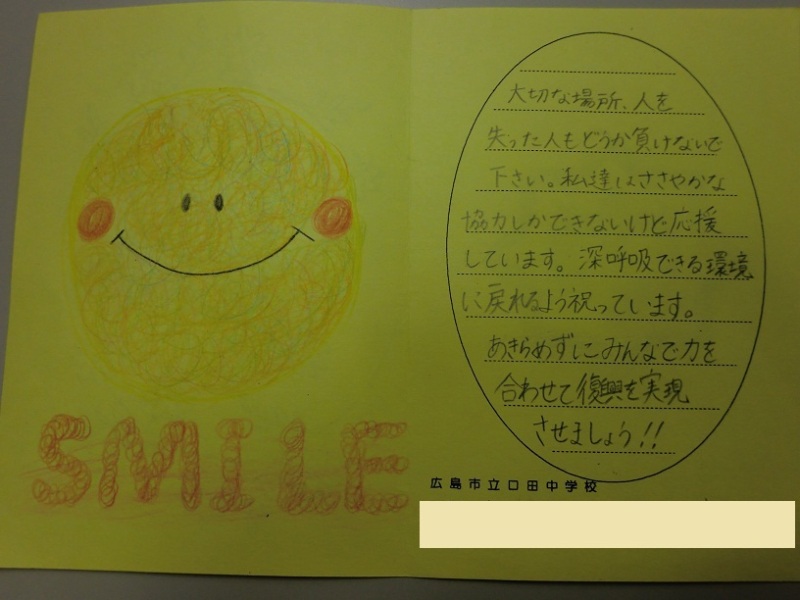 SMILE
大切な場所、人を
失った人もどうか負けないで
下さい。私達はささやかな
協力しかできないけど応援
しています。深呼吸できる環境
に戻れるよう祝っています。
あきらめずにみんなで力を
合わせて復興を実現
させましょう!!
広島市立口田中学校